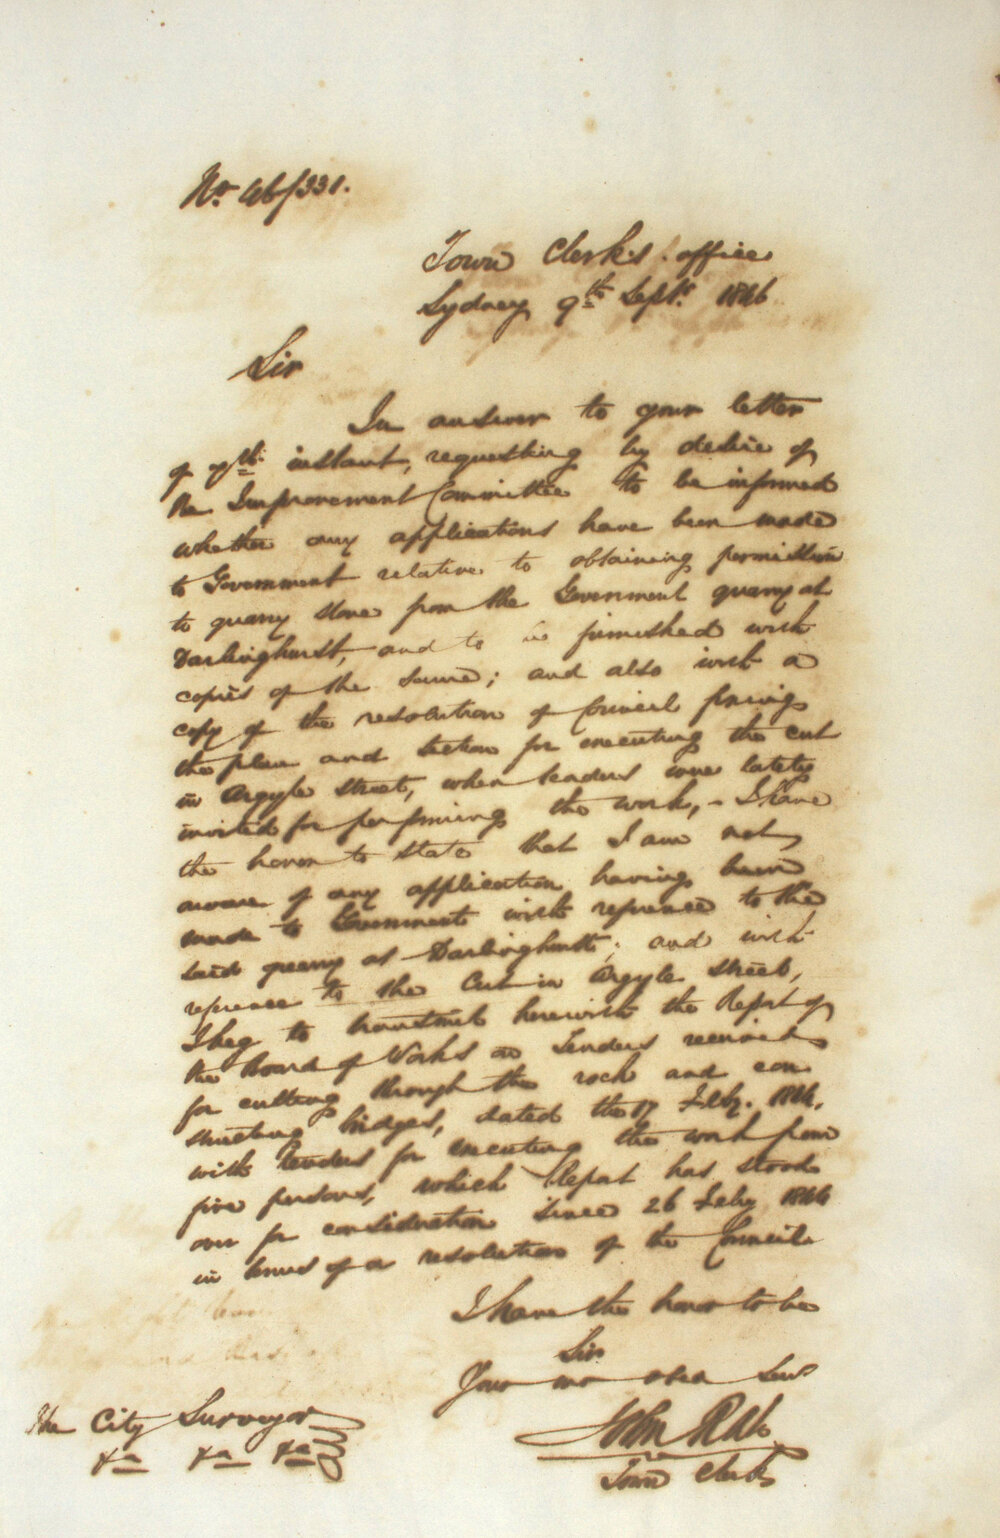 No. 46/331.
Town Clerk's office
Sydney 9th Septr. 1846
Sir
In answer to your letter
of 7th instant, requesting by desire of
the Improvement Committee to be informed
whether any applications have been made
to Government relative to obtaining permission
to quarry stone from the Government quarry at
Darlinghurst, and to be furnished with
copies of the same; and also with a
copy of the resolution of Council fixing
the plan and section for executing the cut
in Argyle Street, when tenders were lately
invited for performing the work, - I have
the honor to state that I am not
aware of any application having been
made to Government with reference to the
said quarry at Darlinghurst; and with
reference to the Cut in Argyle Street,
I beg to transmit herewith the Report of
the Board of Works on Tenders received
for cutting through the rock and con
structing bridges, dated the 17 Feby. 1844,
with tenders for executing the work from
five persons, which Report has stood
over for consideration since 26 Feby 1844
in terms of a resolution of the Council.
I have the honor to be
Sir
Your mo obed Servt
John Rae
Town Clerk
The City Surveyor
&a &a &a